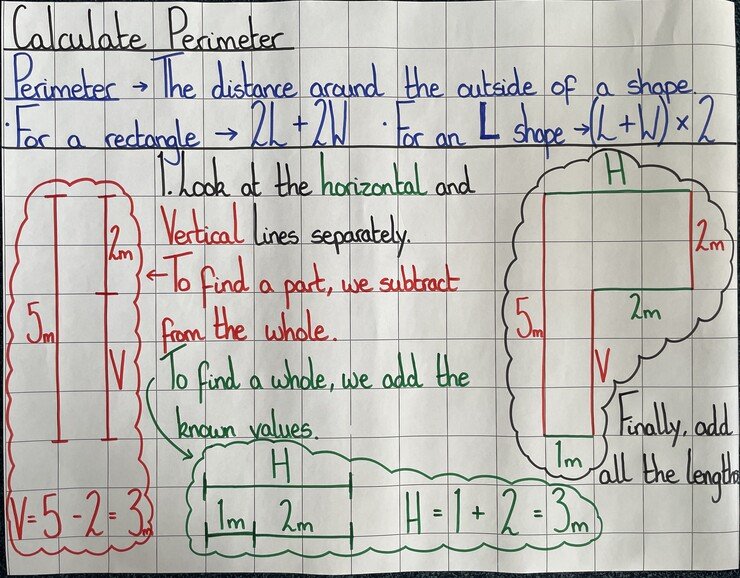 Calculate Perimeter
Perimeter → The distance around the outside of a shape.
·For a rectangle → 2L + 2W · For an L shape → (L + W) × 2
1. Look at the horizontal and
Vertical lines separately.
← To find a part, we subtract
from the whole.
To find a whole, we add the
known values.
2m
5m
V
V = 5 - 2 = 3m
H
2m
5m
2m
V
1m
Finally, add
all the lengths
H
1m 2m
H = 1 + 2 = 3m